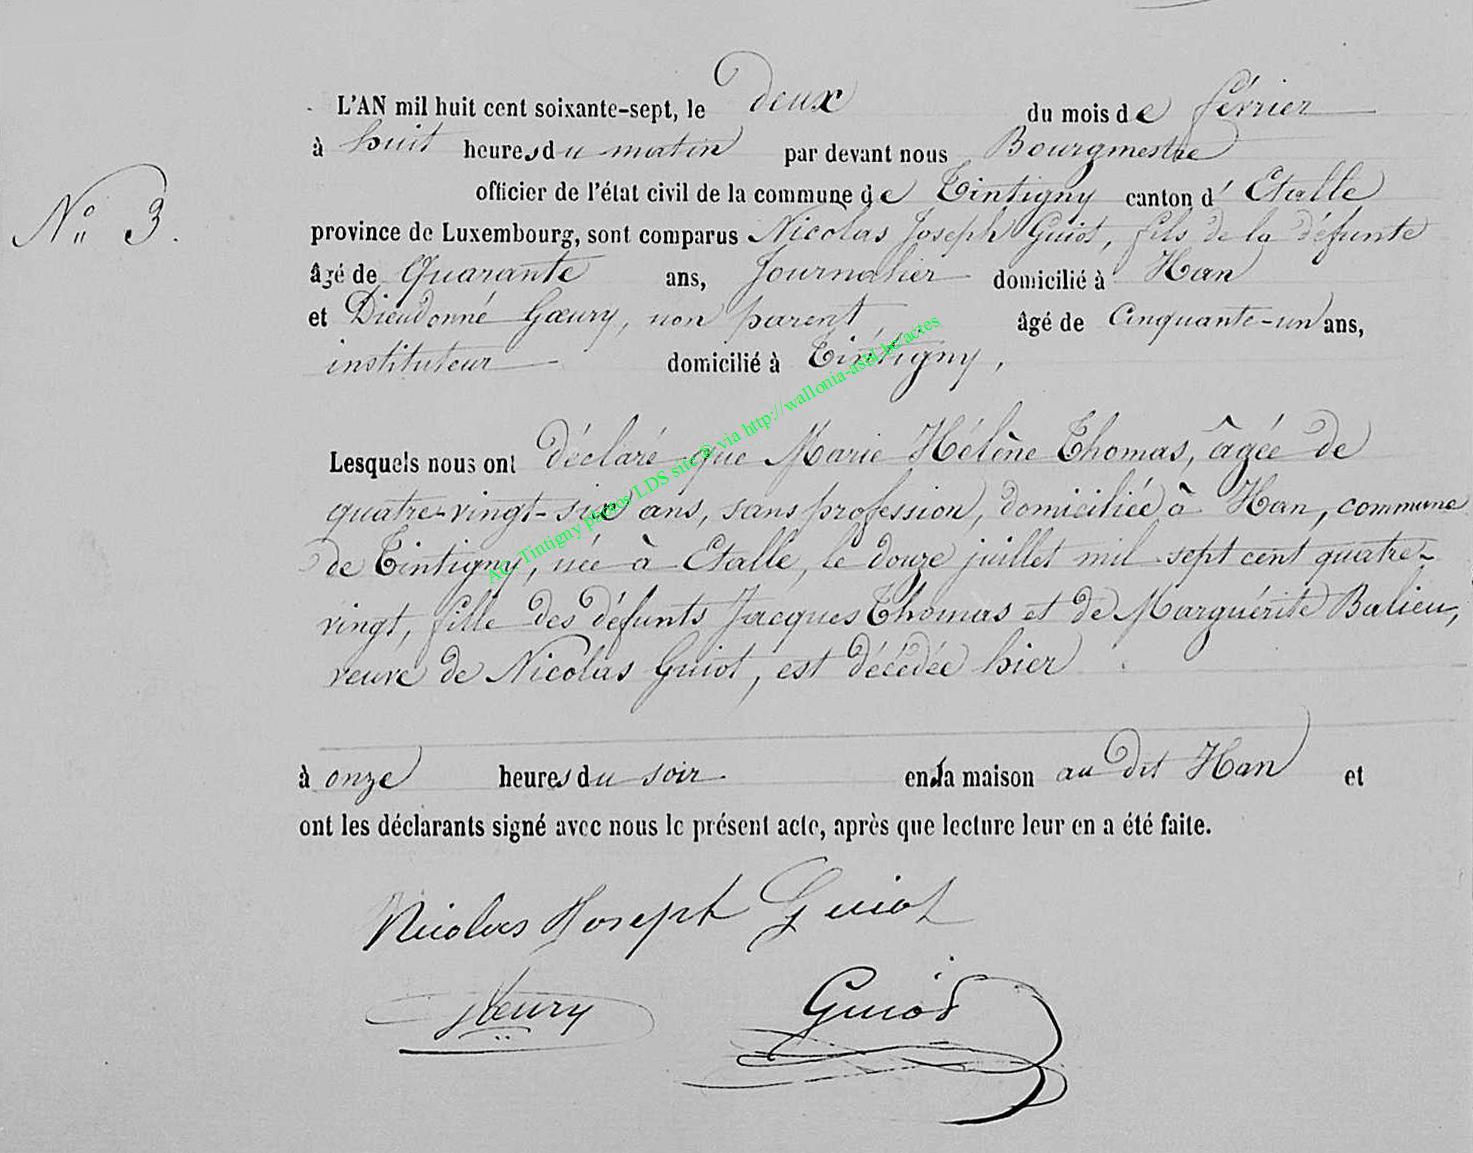 L'AN mil huit cent soixante-sept, le deux du mois de février
à huit heures du matin par devant nous Bourgmestre
officier de l'état civil de la commune de Tintigny canton d' Etalle
N° 3.
province de Luxembourg, sont comparus Nicolas Joseph Guiot, fils de la défunte
âgé de Quarante ans, Journalier domicilié à Han
et Dieudonné Gœury, non parent, âgé de Cinquante-un ans,
instituteur domicilié à Tintigny,
AC Tintigny photos LDS site @ via http://wallonia-asbl.be/actes
Lesquels nous ont déclaré que Marie Hélène Thomas, âgée de
quatre-vingt-six ans, sans profession, domiciliée à Han, commune
de Tintigny, née à Etalle, le douze juillet mil sept cent quatre-
vingt, fille des défunts Jacques Thomas et de Marguérite Balieu,
veuve de Nicolas Guiot, est décédée hier
à onze heures du soir en la maison au dit Han et
ont les déclarants signé avec nous le présent acte, après que lecture leur en a été faite.
Nicolas Joseph Guiot
Gœury Guiot